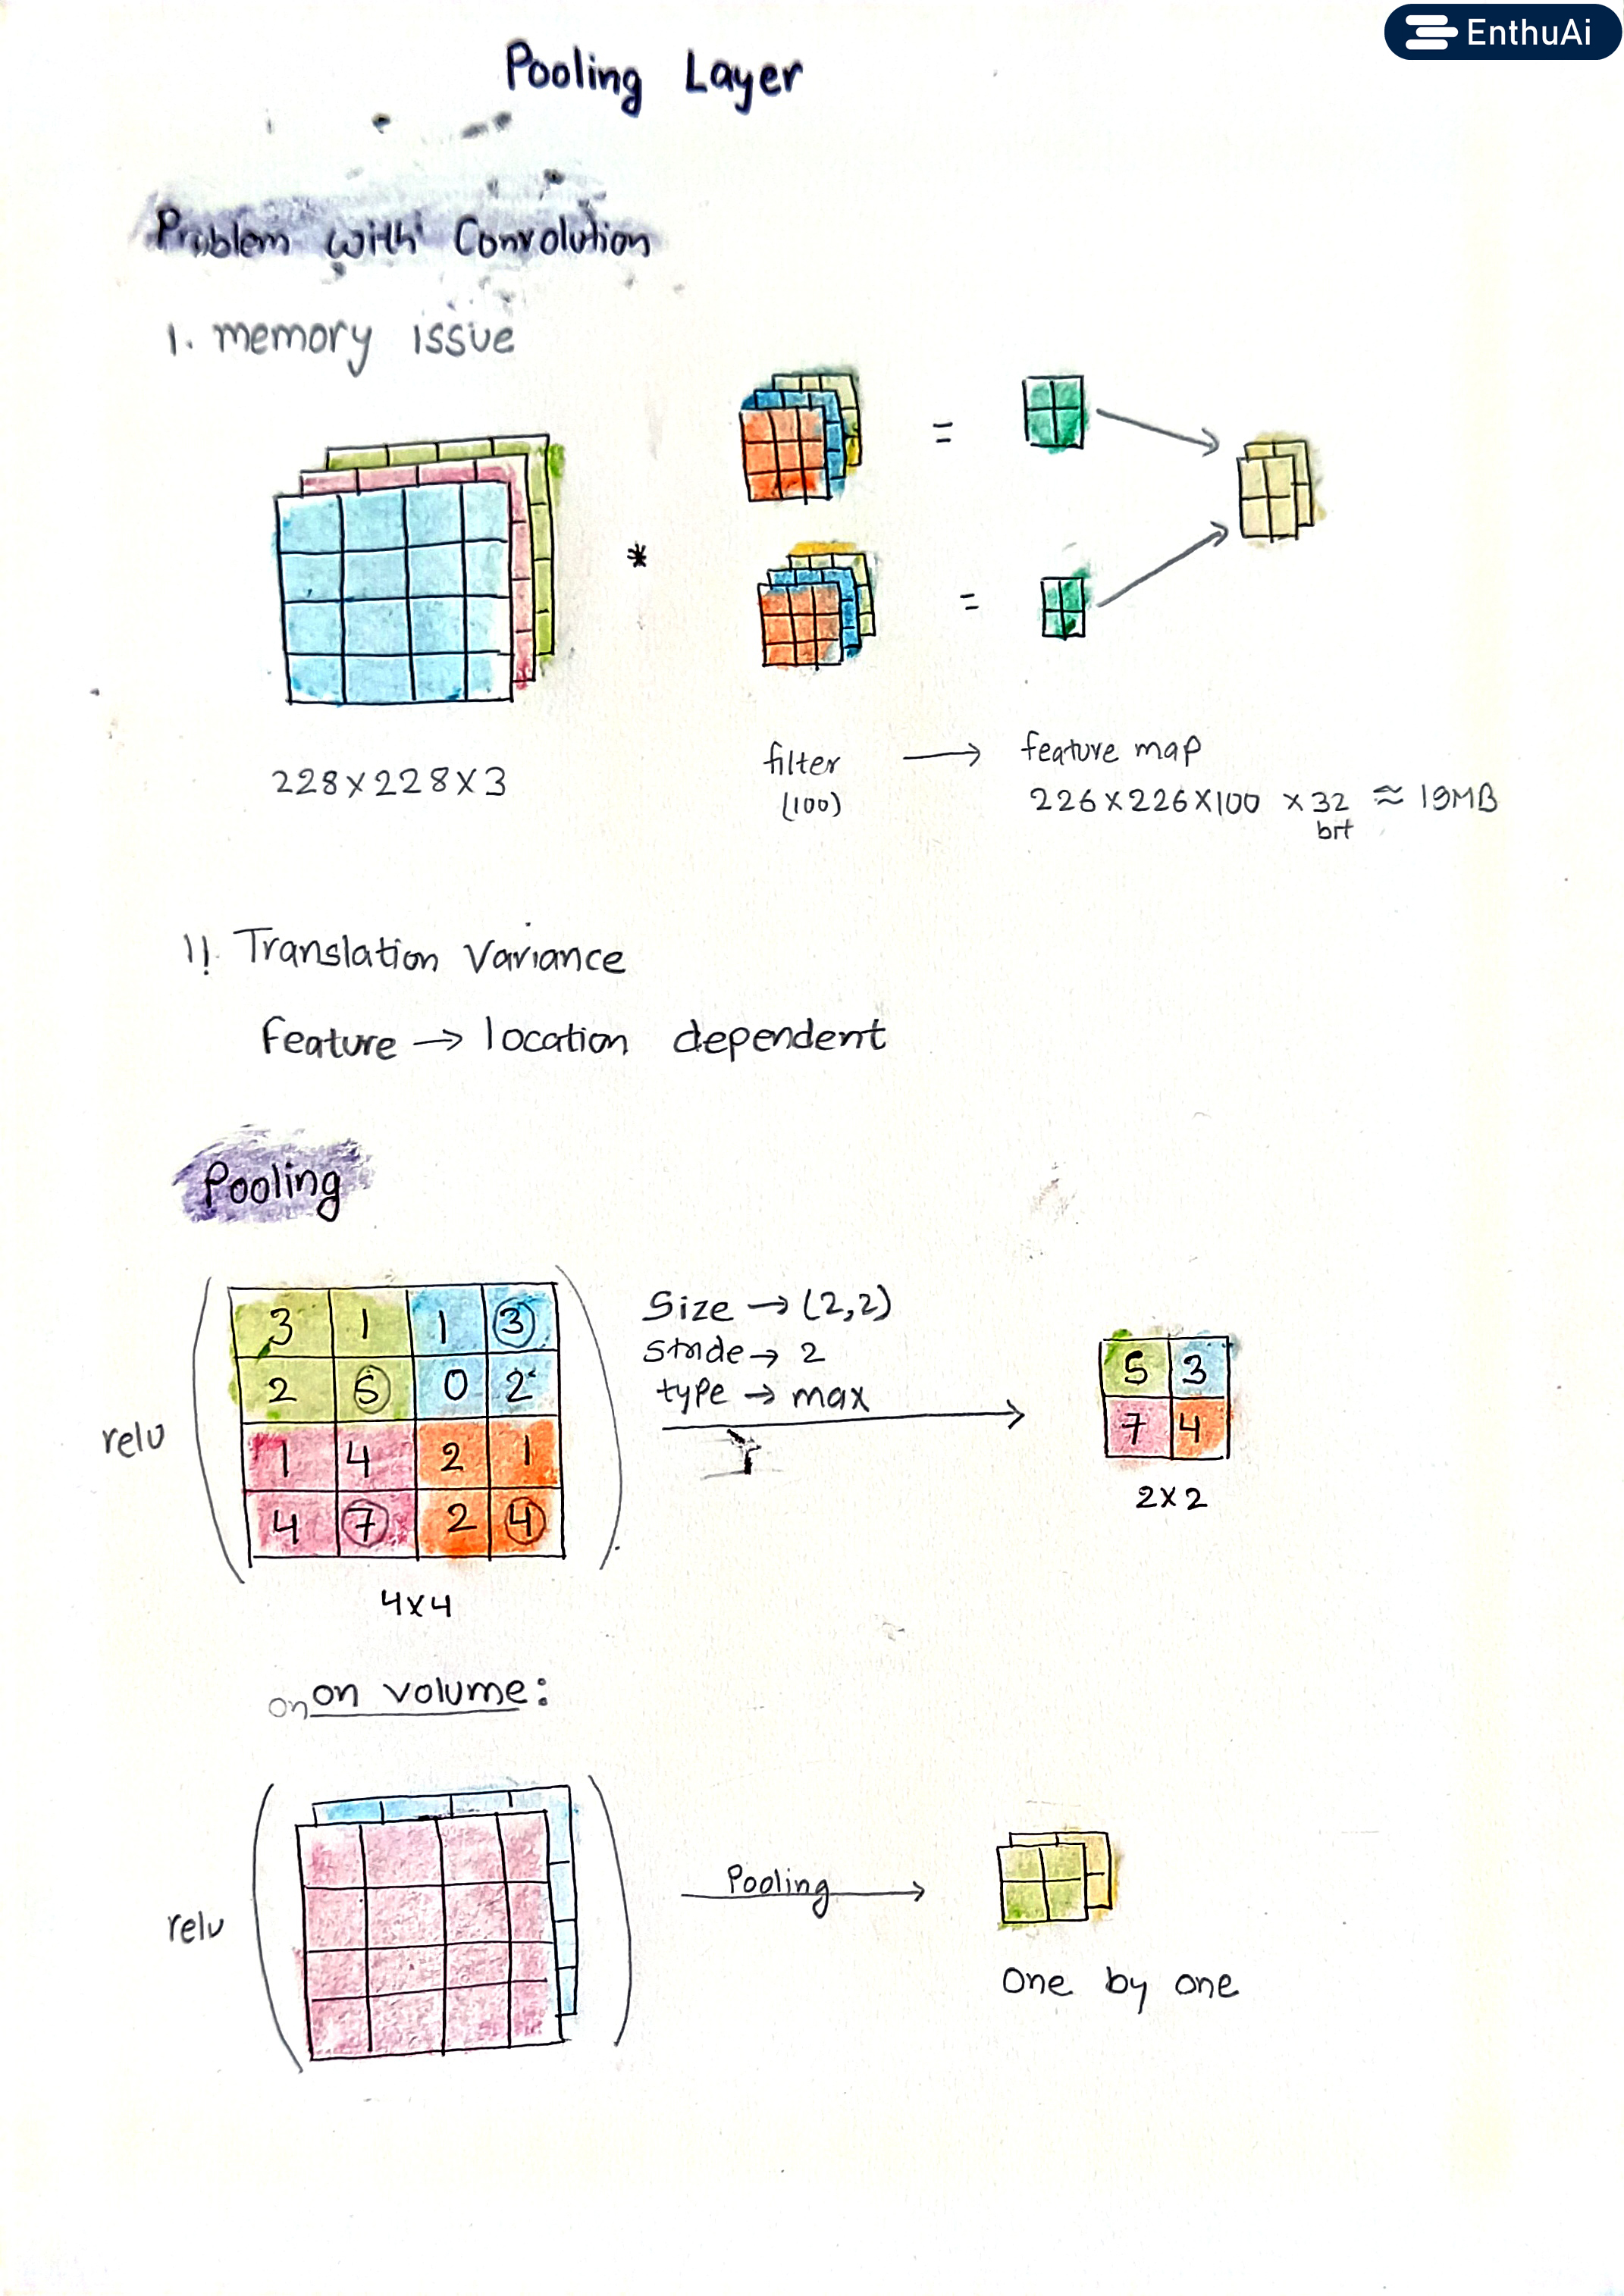 EnthuAi
Pooling Layer
Problem with Convolution
I. memory issue
*
=
=
228 x 228 x 3
filter → feature map
(100)
226 x 226 x 100 x 32 ≈ 19MB
bit
II. Translation Variance
Feature → location dependent
Pooling
relu
3 1 1 3
2 5 0 2
1 4 2 1
4 7 2 4
4x4
Size → (2,2)
Stride → 2
type → max
5 3
7 4
2x2
on on volume:
relu
Pooling
One by one